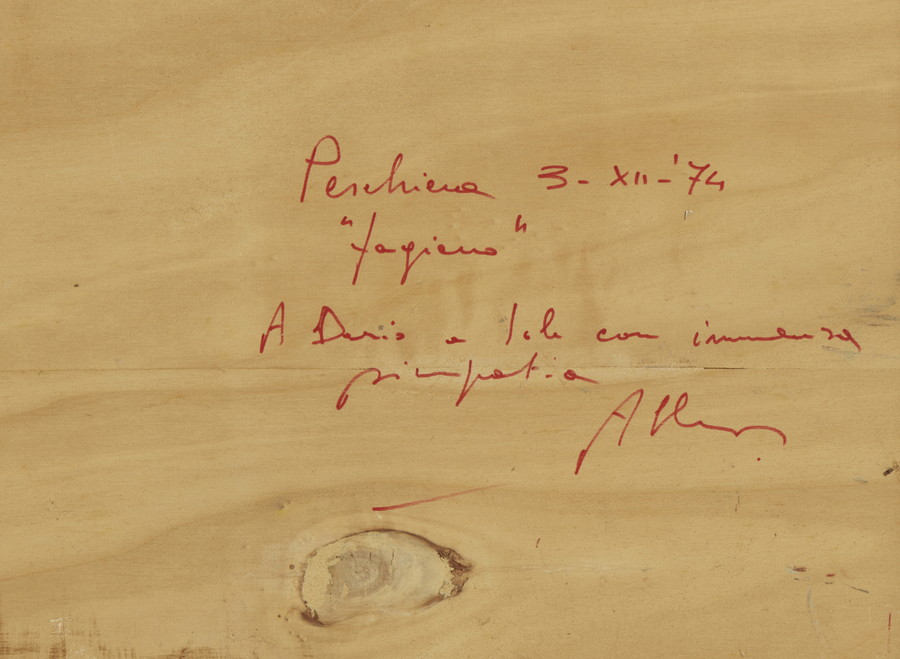 Peschiera 3-XII-'74
"fagiano"
A Dario e Iole con immensa
simpatia